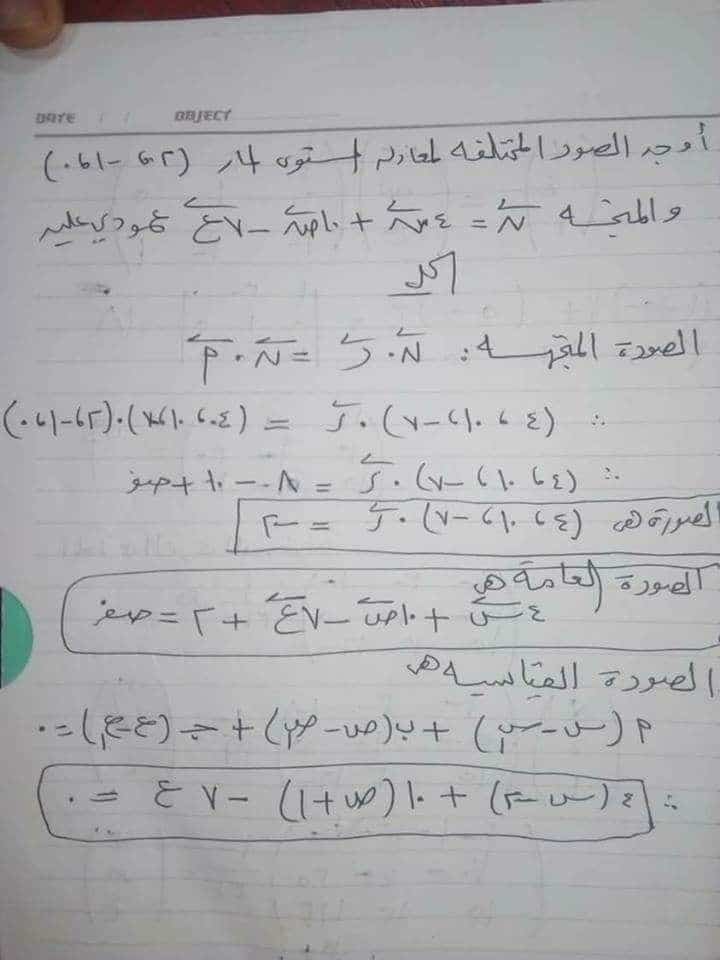 DATE / / OBJECT
أوجد الصور المختلفة لمعادلة المستوى المار (٢، -١، ٠)
والمتجه ن = ٤س + ١٠ص - ٧ع عمودي عليه
الحل
الصورة المتجهة: ن · ر = ن · م
∴ (٤، ١٠، -٧) · ر = (٤، ١٠، ٧) · (٢، -١، ٠)
∴ (٤، ١٠، -٧) · ر = ٨ - ١٠ + صفر
الصورة هي (٤، ١٠، -٧) · ر = -٢
الصورة العامة هي
٤س + ١٠ص - ٧ع + ٢ = صفر
الصورة القياسية هي
م(س - س١) + ب(ص - ص١) + جـ(ع - ع١) = ٠
∴ ٤(س - ٢) + ١٠(ص + ١) - ٧ع = ٠